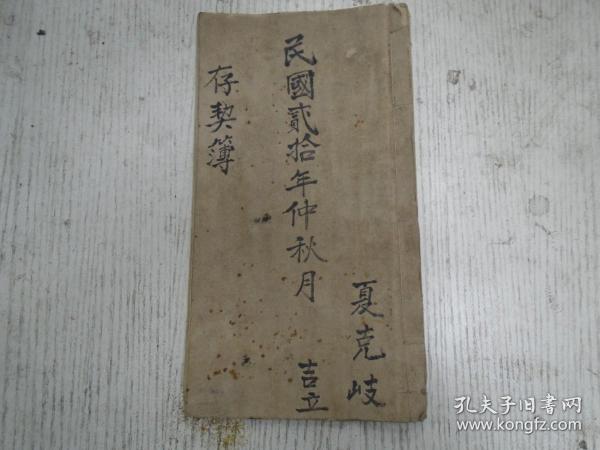 夏克岐
民國貳拾年仲秋月
吉立
存契簿
孔夫子旧书网
www.kongfz.com